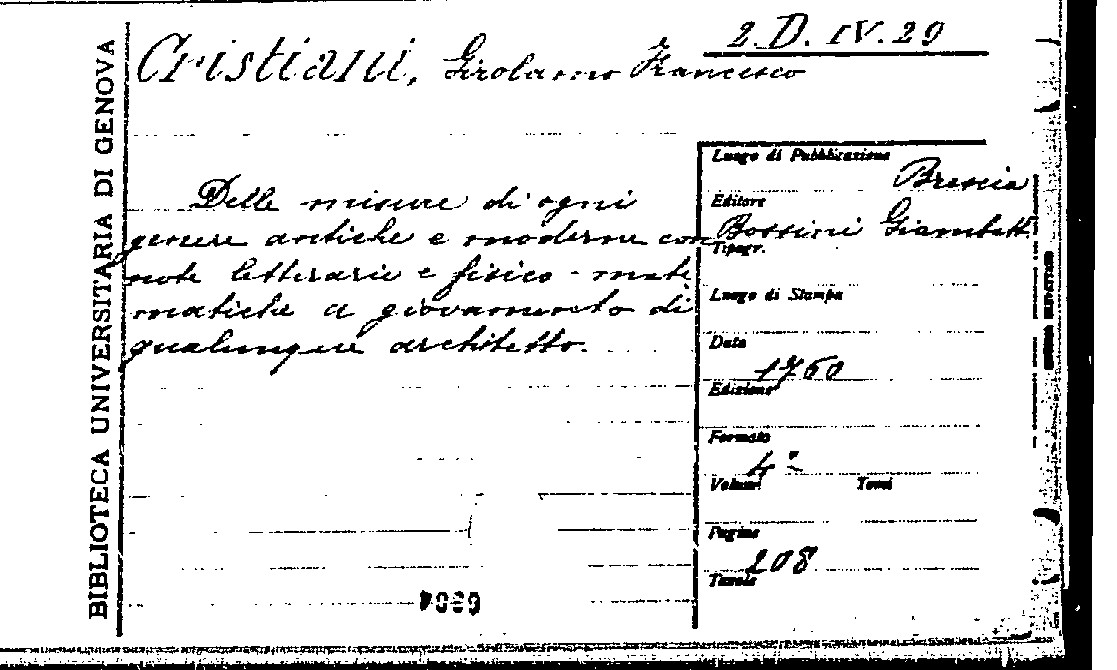 BIBLIOTECA UNIVERSITARIA DI GENOVA
2. D. IV. 29
Cristiani, Girolamo Francesco
Delle misure di ogni
genere antiche e moderne con
note letterarie e fisico-mate
matiche a giovamento di
qualunque architetto.
Luogo di Pubblicazione
Brescia
Editore
Bossini Giambatt.
Tipogr.
Luogo di Stampa
Data
1760
Edizione
Formato
4°
Volumi Tomi
Pagine
208
Tavole